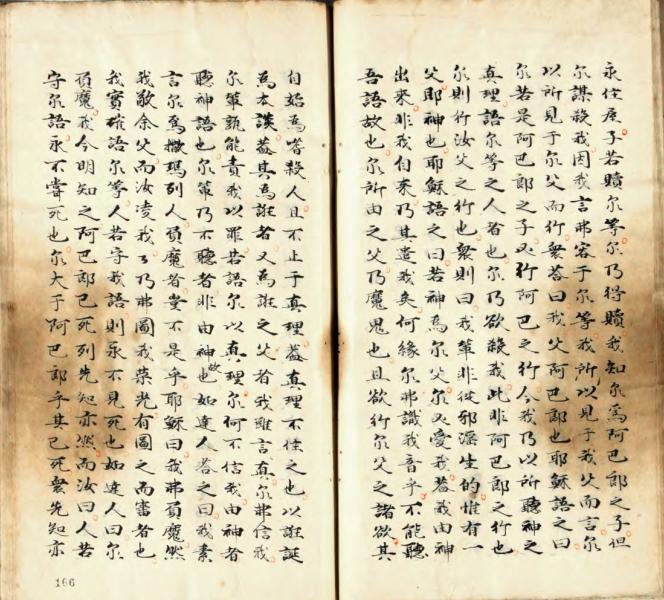 永住屋子若贖尔等尔乃得贖我知尔爲阿巴郎之子但
尔謀殺我因我言弗容于尔等我所以見于我父而言尔
以所見于尔父而行衆荅曰我父阿巴郎也耶穌語之曰
尔若是阿巴郎之子必行阿巴之行今我乃以所聽神之
真理語尔等之人者也尔乃欲殺我此非阿巴郎之行也
尔則行汝父之行也衆則曰我輩非從邪淫生的惟有一
父即神也耶穌語之曰若神爲尔父尔必愛我葢我由神
出來非我自來乃其遣我矣何緣尔弗識我音乎不能聽
吾語故也尔所由之父乃魔鬼也且欲行尔父之諸欲其
自始爲嗜殺人且不止于真理葢真理不住之也以誑誕
爲本談葢其爲誑者又爲誑之父者我雖言真尔弗信我
尔輩孰能責我以罪若語尔以真理尔何不信我由神者
聽神語也尔輩乃不聽者非由神故也如達人荅之曰我素
言尔爲撒瑪列人負魔者豈不是乎耶穌曰我弗負魔然
我敬余父而汝凌我々乃弗圖我榮光有圖之而審者也
我實確語尔等人若守我語則永不見死也如達人曰尔
負魔我今明知之阿巴郎已死列先知亦然而汝曰人若
守尔語永不嘗死也尔大于阿巴郎乎其已死衆先知亦
166